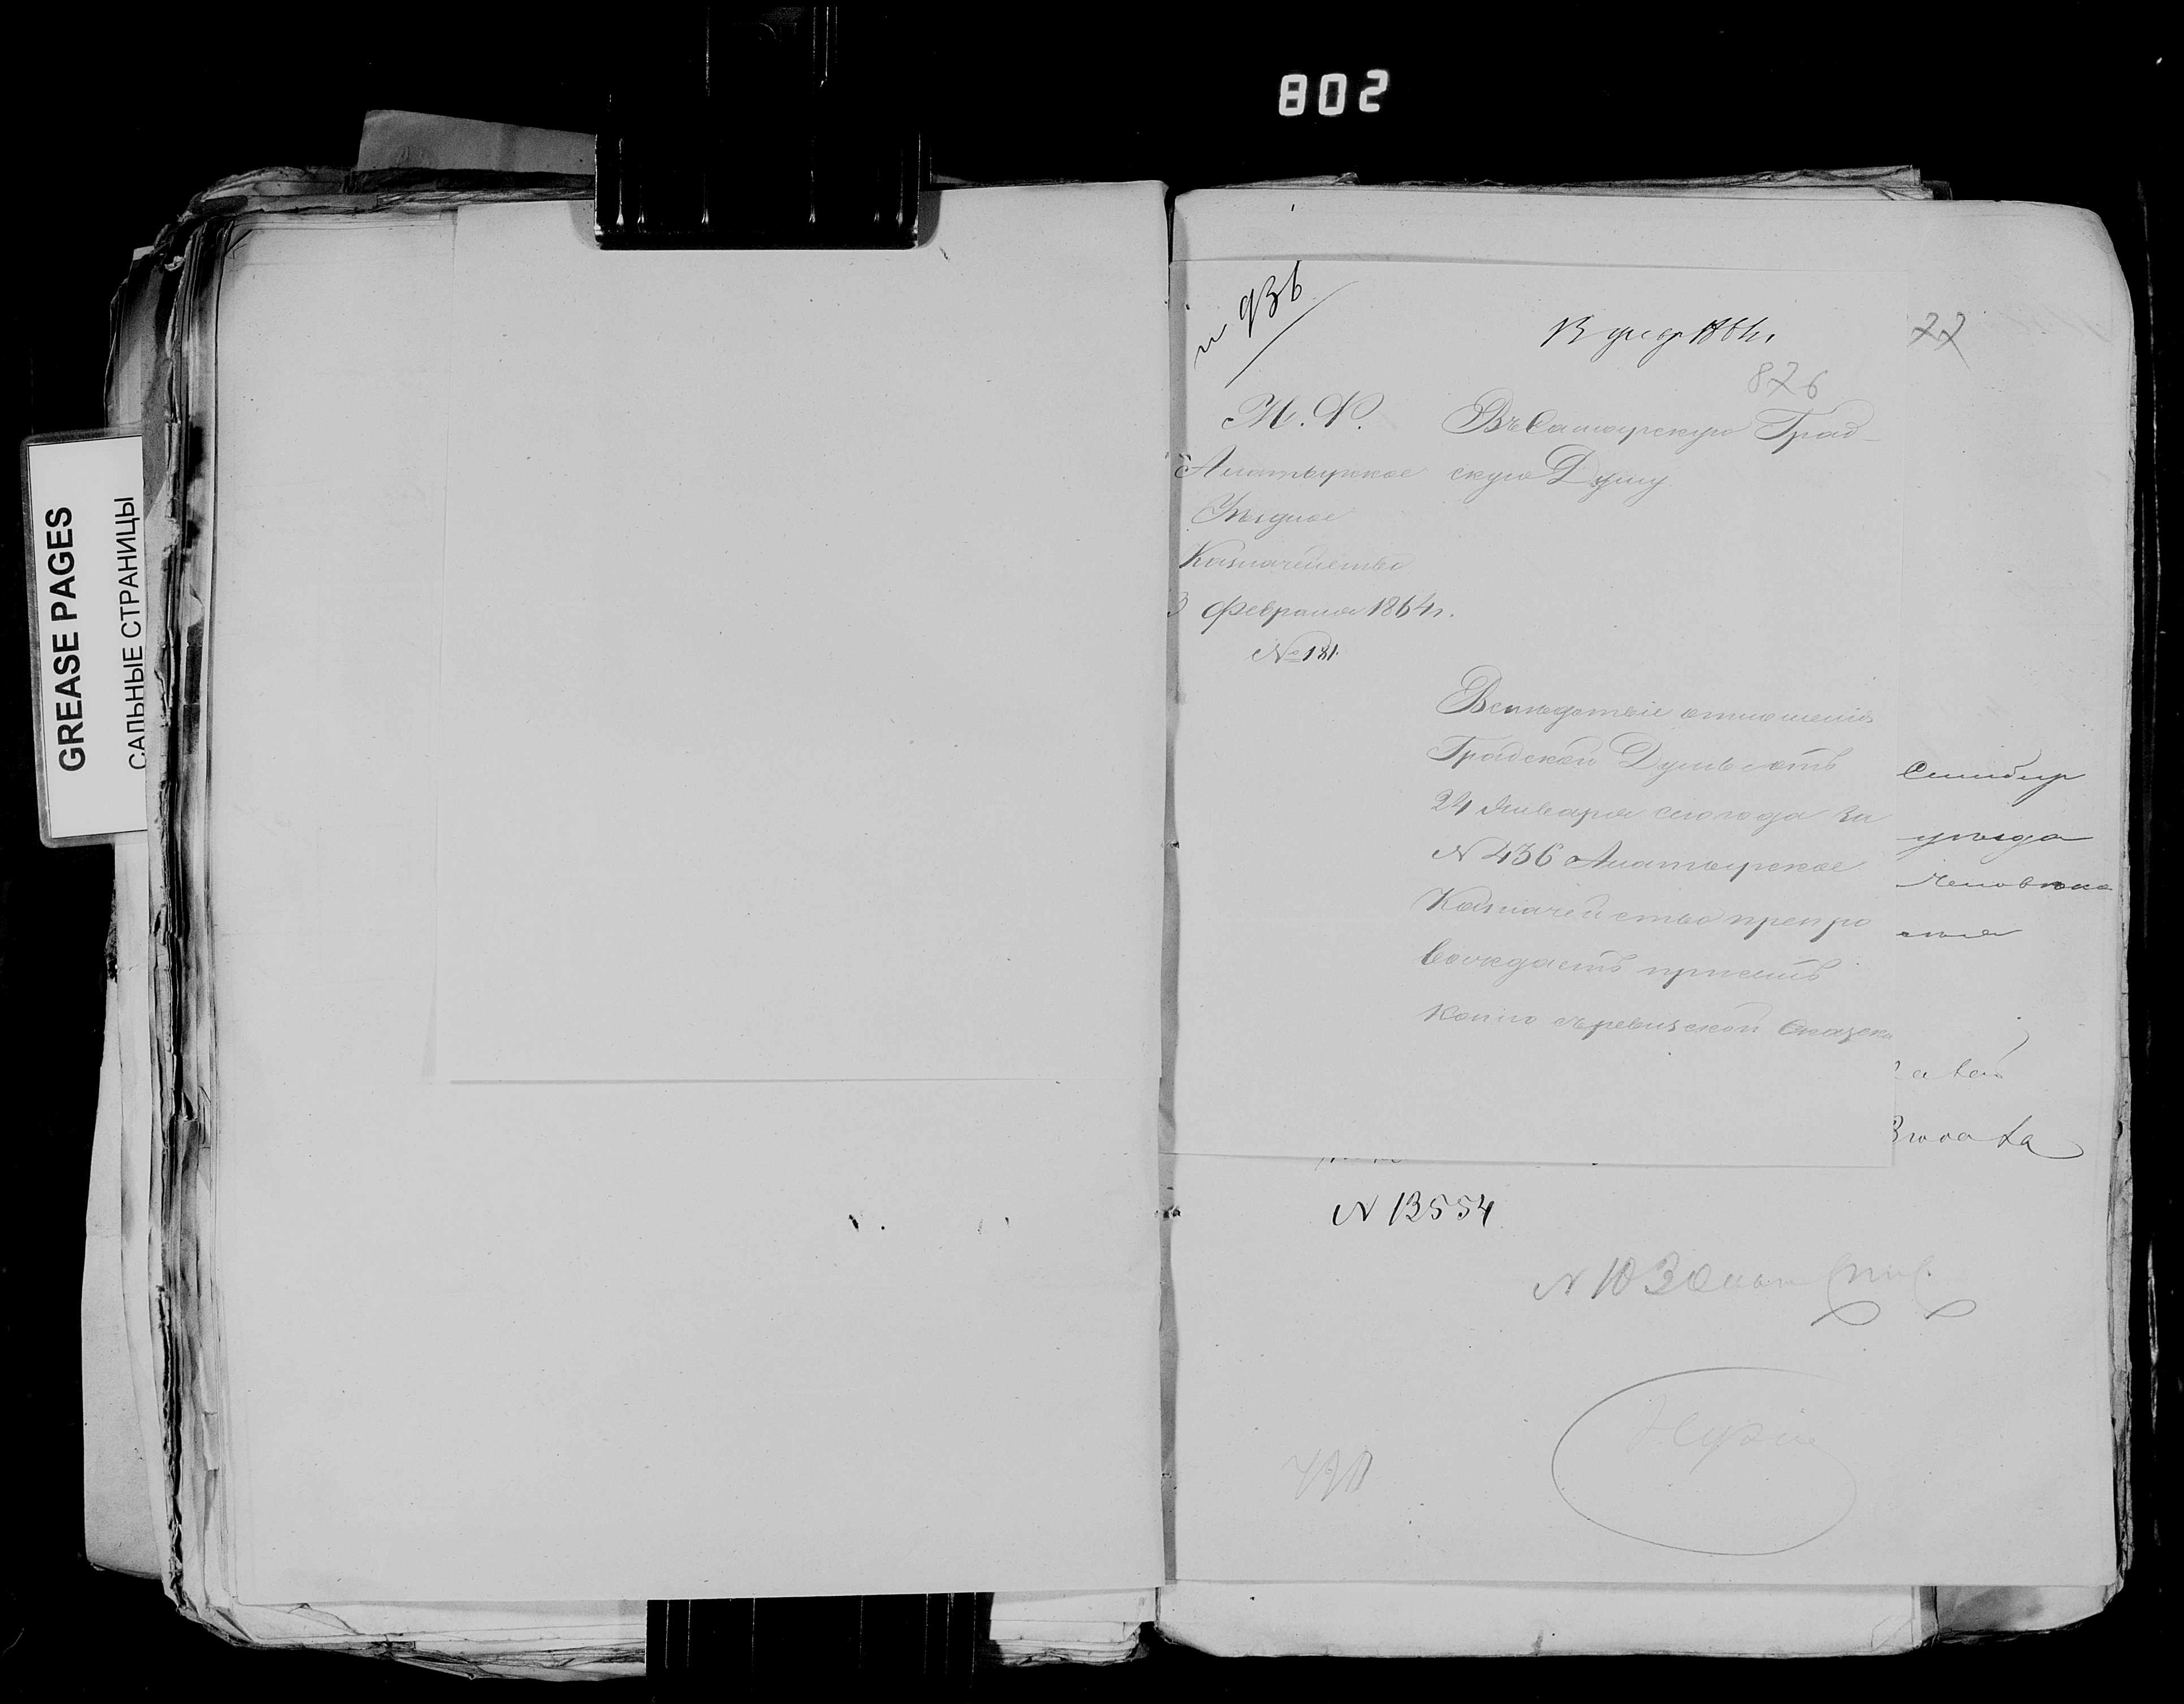 802
GREASE PAGES
САЛЬНЫЕ СТРАНИЦЫ
№ 936
13 февр 1864 г.
77
876
М. Ф.
Алатырское
Уѣздное
Казначейство
3 февраля 1864 г.
№ 181.
Въ Самарскую Град-
скую Думу
Вслѣдствіе отношенія
Градской Думы отъ
24 Января сего года за
N 436 Алатырское
Казначейство препро
вождаетъ при семъ
копію съ ревизской Сказки
Симбир
уѣзда
Человѣка
N 13554
N 10